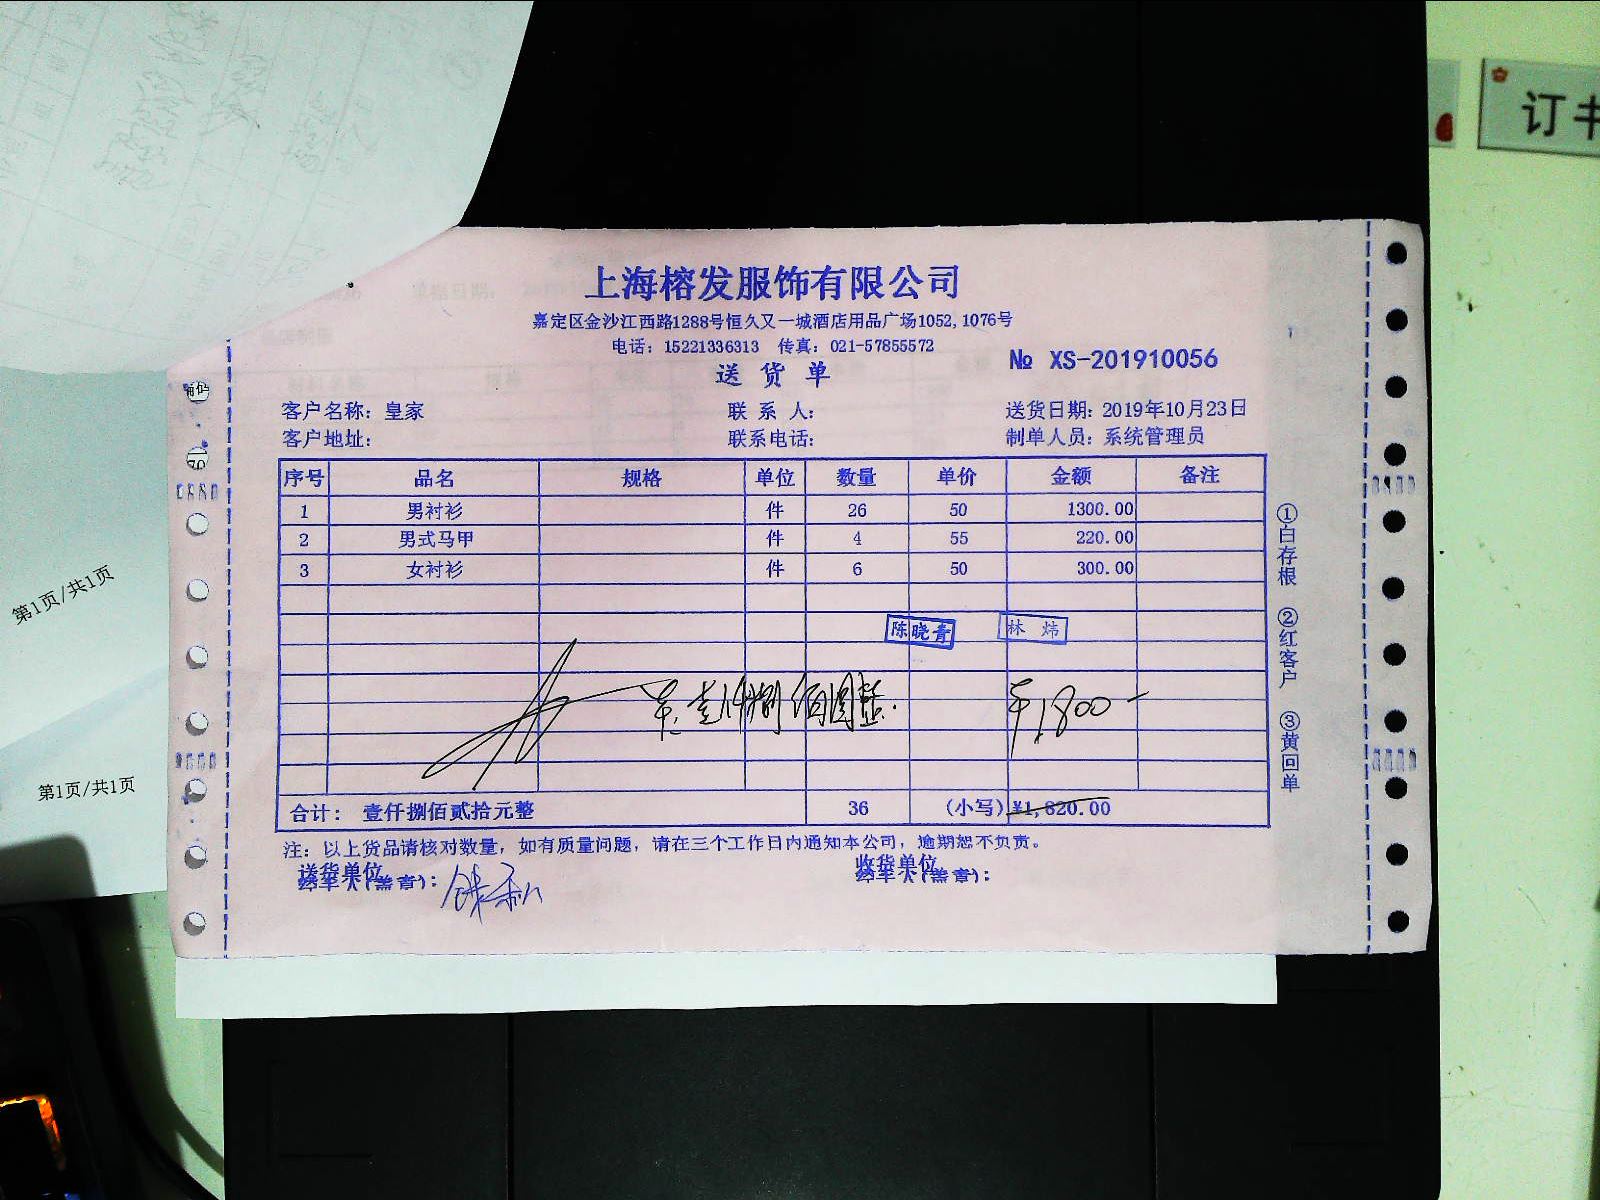 订书
上海榕发服饰有限公司
嘉定区金沙江西路1288号恒久又一城酒店用品广场1052,1076号
电话：15221336313 传真：021-57855572
送 货 单
№ XS-201910056
客户名称：皇家 联 系 人： 送货日期：2019年10月23日
客户地址： 联系电话： 制单人员：系统管理员
序号 品名 规格 单位 数量 单价 金额 备注
1 男衬衫 件 26 50 1300.00
2 男式马甲 件 4 55 220.00
3 女衬衫 件 6 50 300.00
陈晓青 林 炜
壹仟捌佰圆整. ¥1800-
合计： 壹仟捌佰贰拾元整 36 （小写）¥1,820.00
注：以上货品请核对数量，如有质量问题，请在三个工作日内通知本公司，逾期恕不负责。
送货单位 收货单位
经手人(盖章)： 经手人(盖章)：
①白存根 ②红客户 ③黄回单
第1页/共1页
第1页/共1页